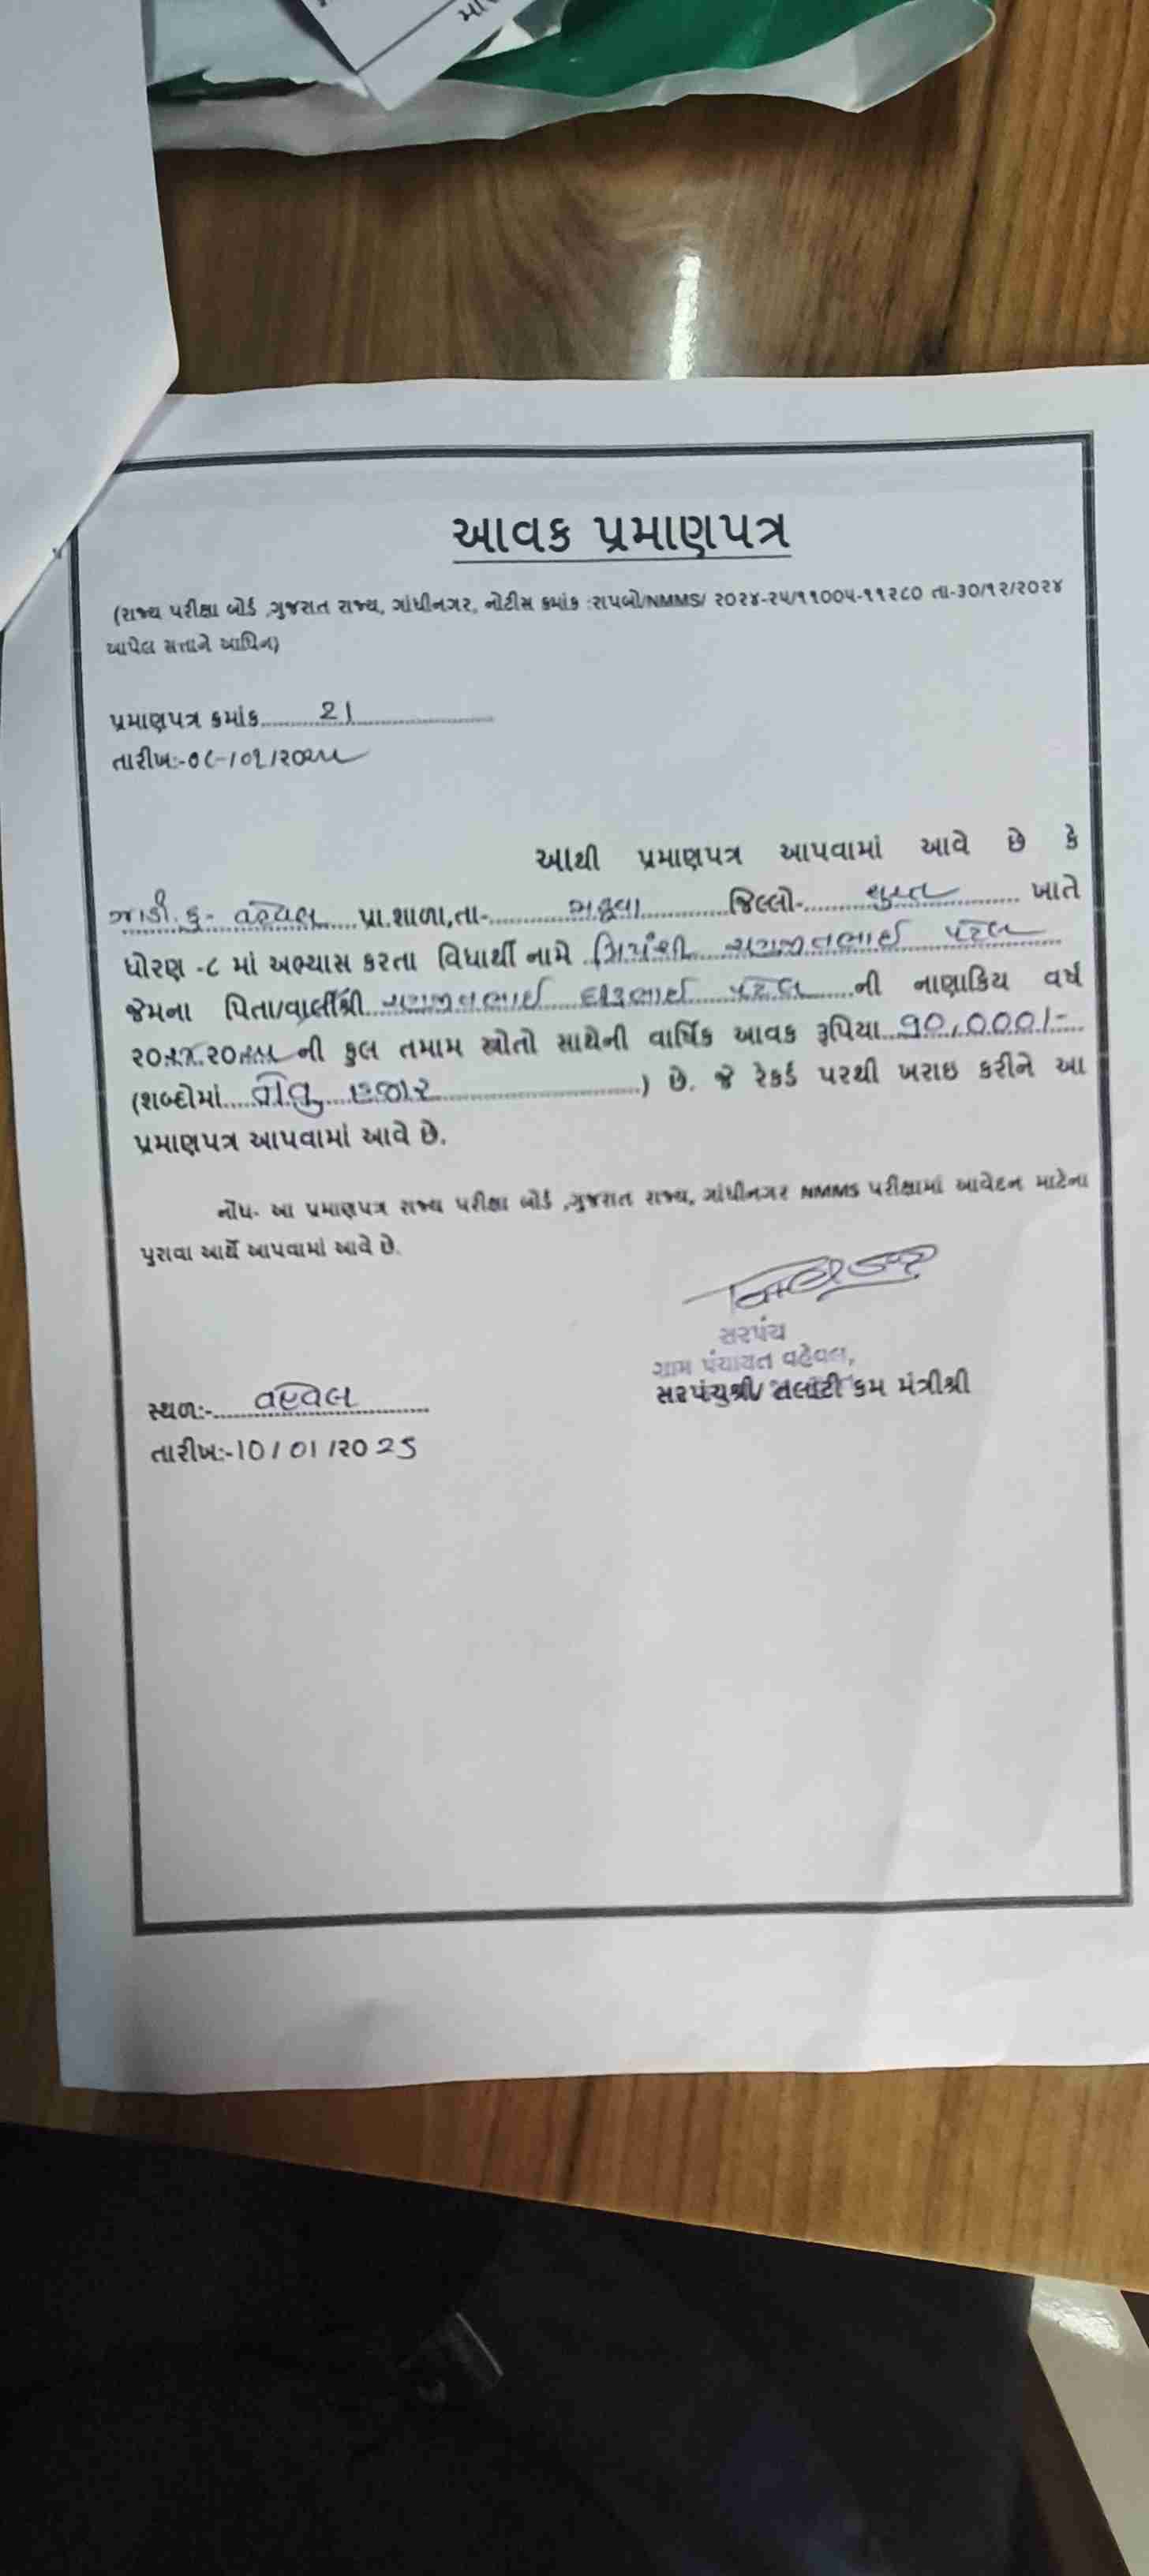 આવક પ્રમાણપત્ર
(રાજ્ય પરીક્ષા બોર્ડ ,ગુજરાત રાજ્ય, ગાંધીનગર, નોટીસ ક્રમાંક :રાપબો/NMMS/ ૨૦૨૪-૨૫/૧૧૦૦૫-૧૧૨૮૦ તા-૩૦/૧૨/૨૦૨૪
આપેલ સત્તાને આધિન)
પ્રમાણપત્ર ક્રમાંક 21
તારીખ:-૦૮/૦૧/૨૦૨૫
આથી પ્રમાણપત્ર આપવામાં આવે છે કે
વહેવલ પ્રા.શાળા,તા- મહુવા જિલ્લો- સુરત ખાતે
ધોરણ -૮ માં અભ્યાસ કરતા વિધાર્થી નામે પટેલ
જેમના પિતા/વાલીશ્રી પટેલ ની નાણાકિય વર્ષ
ની કુલ તમામ સ્ત્રોતો સાથેની વાર્ષિક આવક રૂપિયા ૯૦,૦૦૦/-
(શબ્દોમાં નેવુ હજાર ) છે. જે રેકર્ડ પરથી ખરાઇ કરીને આ
પ્રમાણપત્ર આપવામાં આવે છે.
નોંધ- આ પ્રમાણપત્ર રાજ્ય પરીક્ષા બોર્ડ ,ગુજરાત રાજ્ય, ગાંધીનગર NMMS પરીક્ષામાં આવેદન માટેના
પુરાવા આર્થે આપવામાં આવે છે.
સરપંચ
ગ્રામ પંચાયત વહેવલ,
સરપંચશ્રી/ તલાટી કમ મંત્રીશ્રી
સ્થળ:- વહેવલ
તારીખ:-10/01/૨૦25